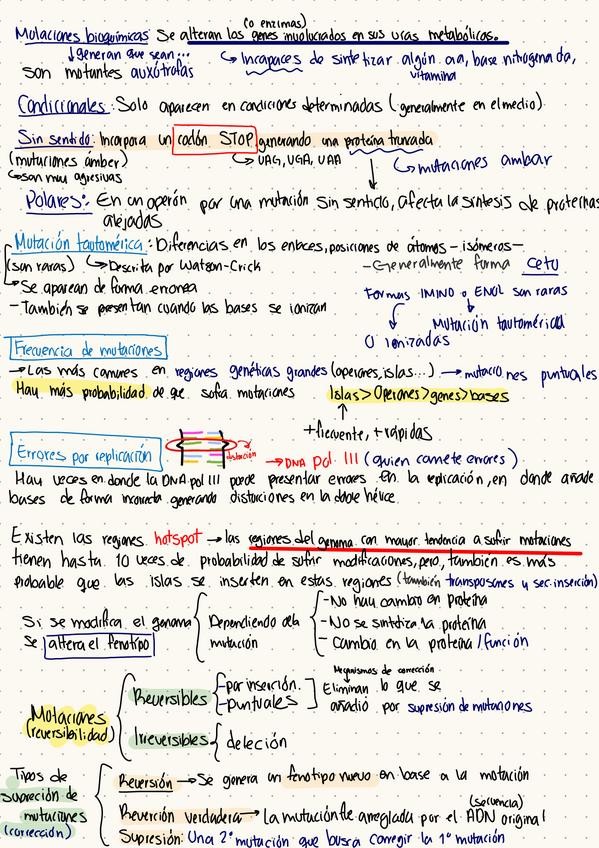 (o enzimas)
Mutaciones bioquímicas Se alteran los genes involucrados en sus vías metabólicas.
↓generan que sean...
↳ Incapaces de sintetizar algún aa, base nitrogenada,
vitamina
Son mutantes auxótrofas
Condicionales: Solo aparecen en condiciones determinadas (generalmente en el medio)
Sin sentido: Incorpora un codón STOP generando una proteína truncada
(mutaciones ámber)
↳ UAG, UGA, UAA
↳ mutaciones ambar
↳son muy agresivas
Polares: En un operón por una mutación sin sentido, afecta la síntesis de proteínas
alejadas
Mutación tautomérica: Diferencias en los enlaces, posiciones de átomos - isómeros -
(son raras) ↳ Descrita por Watson-Crick
- Generalmente forma ceto
→ Se aparean de forma erronea
Formas IMINO o ENOL son raras
- También se presentan cuando las bases se ionizan
Mutación tautomérica
O ionizadas
Frecuencia de mutaciones
→ Las más comunes en regiones genéticas grandes (operones, islas...) → mutaciones puntuales
Hay más probabilidad de que sufra mutaciones
Islas > Operones > genes > bases
+ frecuente, + rápidas
Errores por replicación
distorsión
→ DNA pol III (quien comete errores)
Hay veces en donde la DNA pol III puede presentar errores en la replicación, en donde añade
bases de forma incorrecta generando distorciones en la doble hélice.
Existen las regiones hotspot → las regiones del genoma con mayor tendencia a sufrir mutaciones
tienen hasta 10 veces de probabilidad de sufrir modificaciones, pero, también es más
probable que las islas se inserten en estas regiones (también transposones y sec. inserción)
Si se modifica el genoma
se altera el fenotipo
Dependiendo de la
mutación
- No hay cambio en proteína
- No se sintetiza la proteína
- Cambio en la proteína / función
Mutaciones
(reversibilidad)
Reversibles
- por inserción.
- puntuales
Mecanismos de corrección
Eliminan lo que se
añadió por supresión de mutaciones
Irreversibles { deleción
Tipos de
supreción de
mutaciones
(corrección)
Reversión → Se genera un fenotipo nuevo en base a la mutación
(secuencia)
Reverción verdadera → La mutación fue arreglada por el ADN original
Supresión: Una 2° mutación que busca corregir la 1° mutación